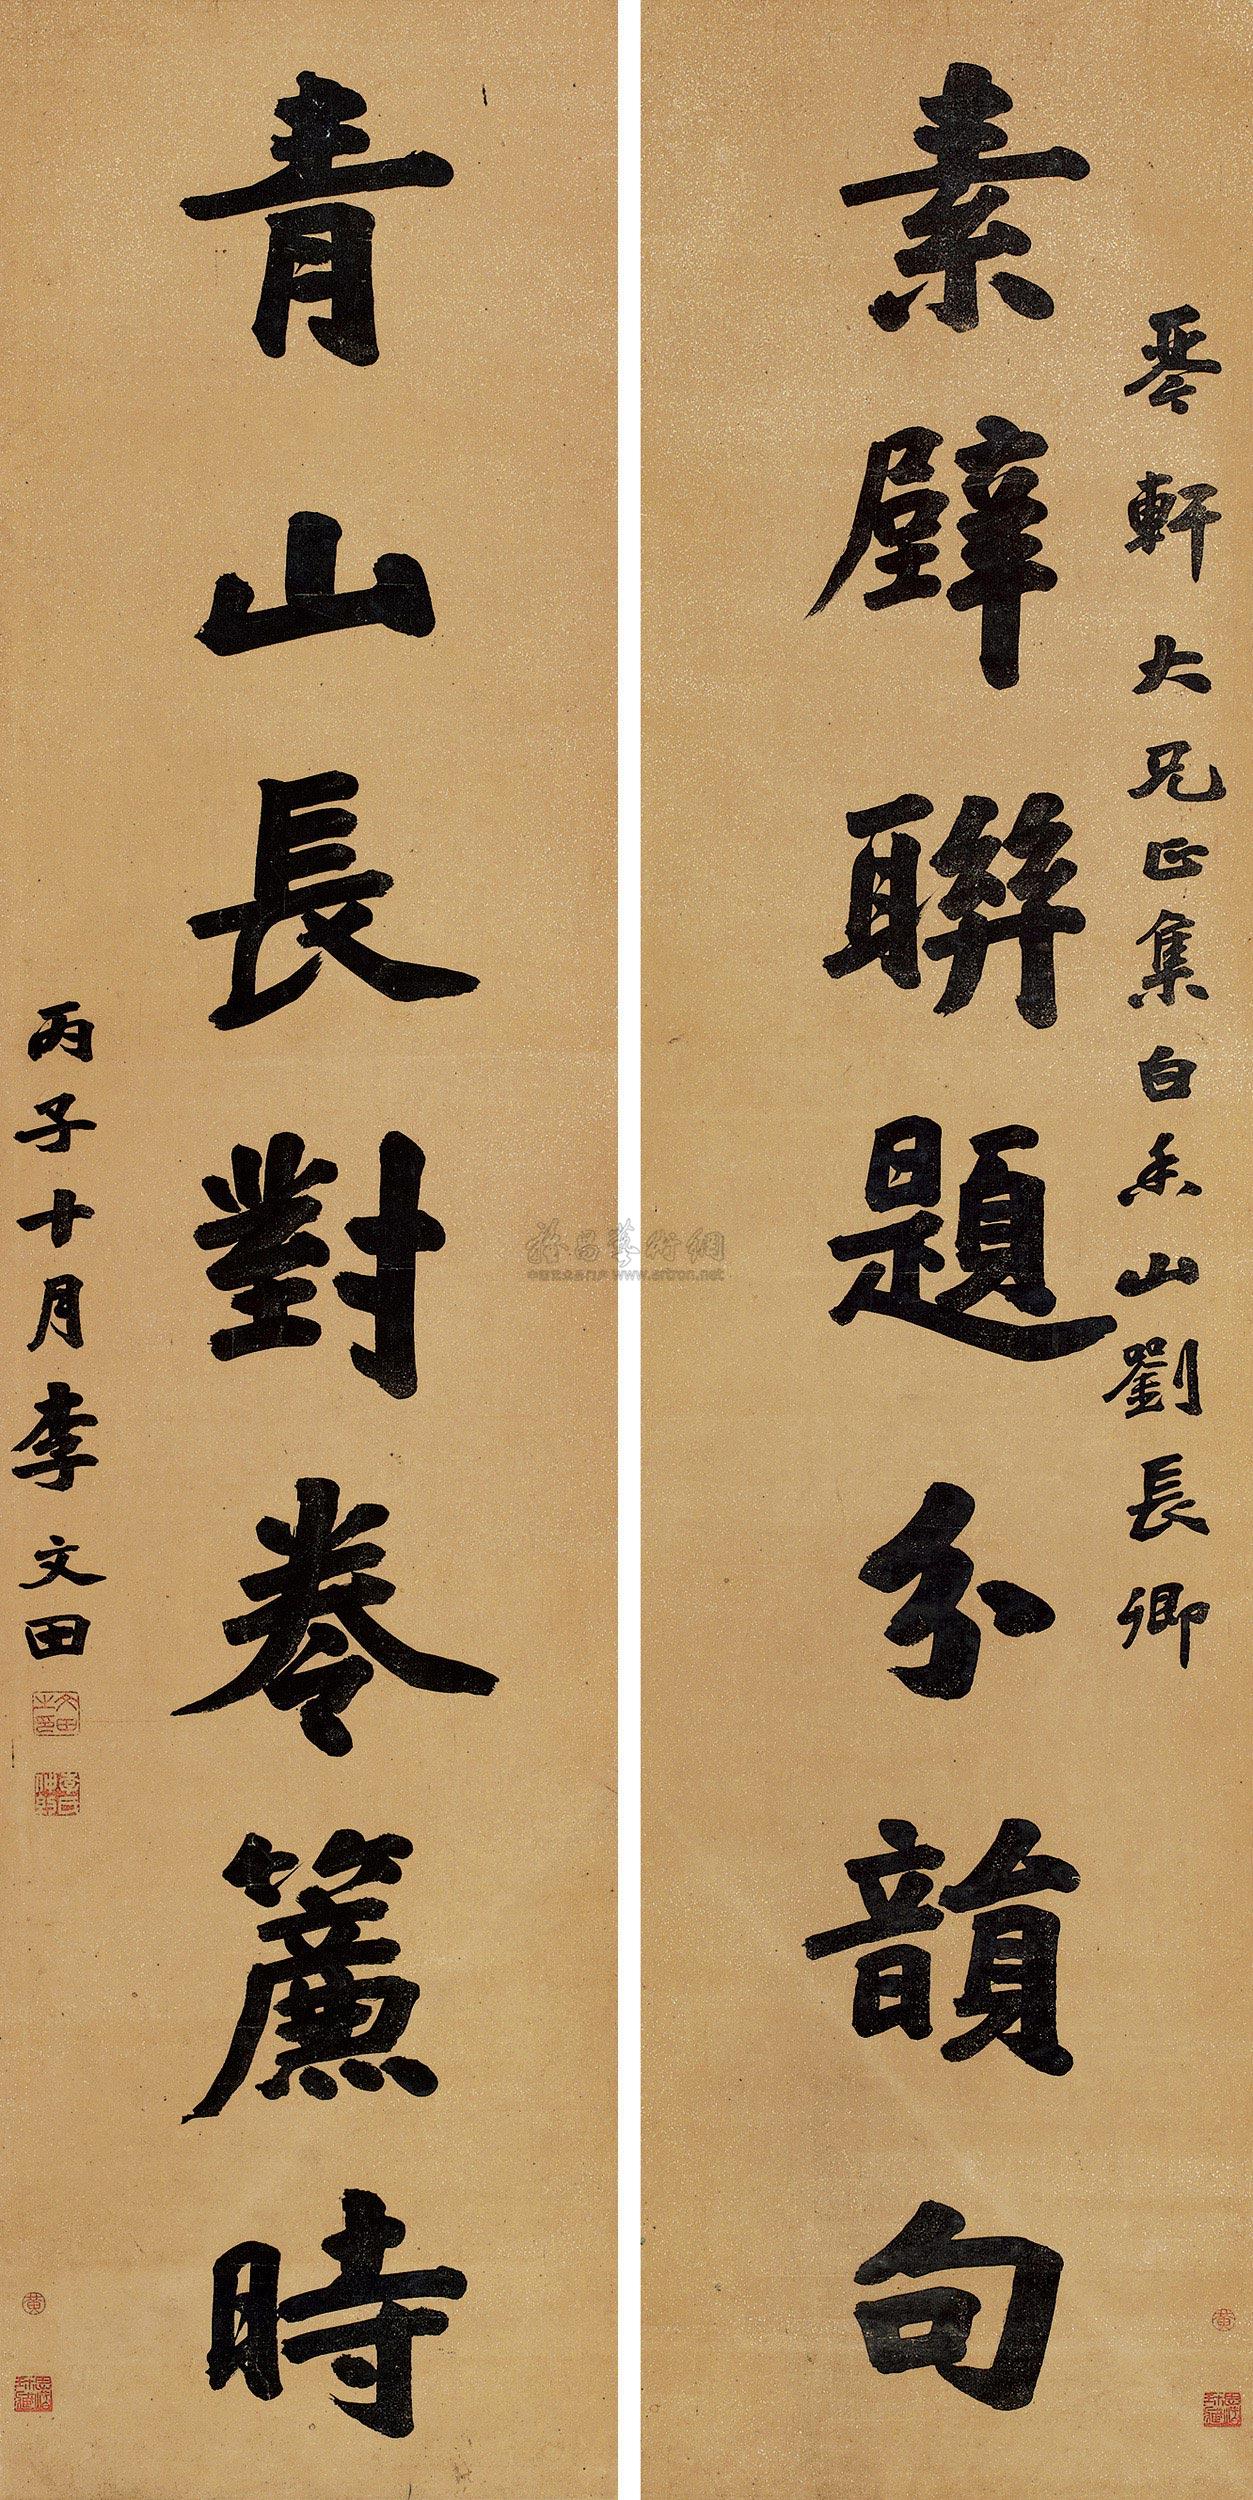 琴軒大兄正集白香山劉長卿
素壁聯題分韻句
青山長對卷簾時
丙子十月李文田
www.artron.net